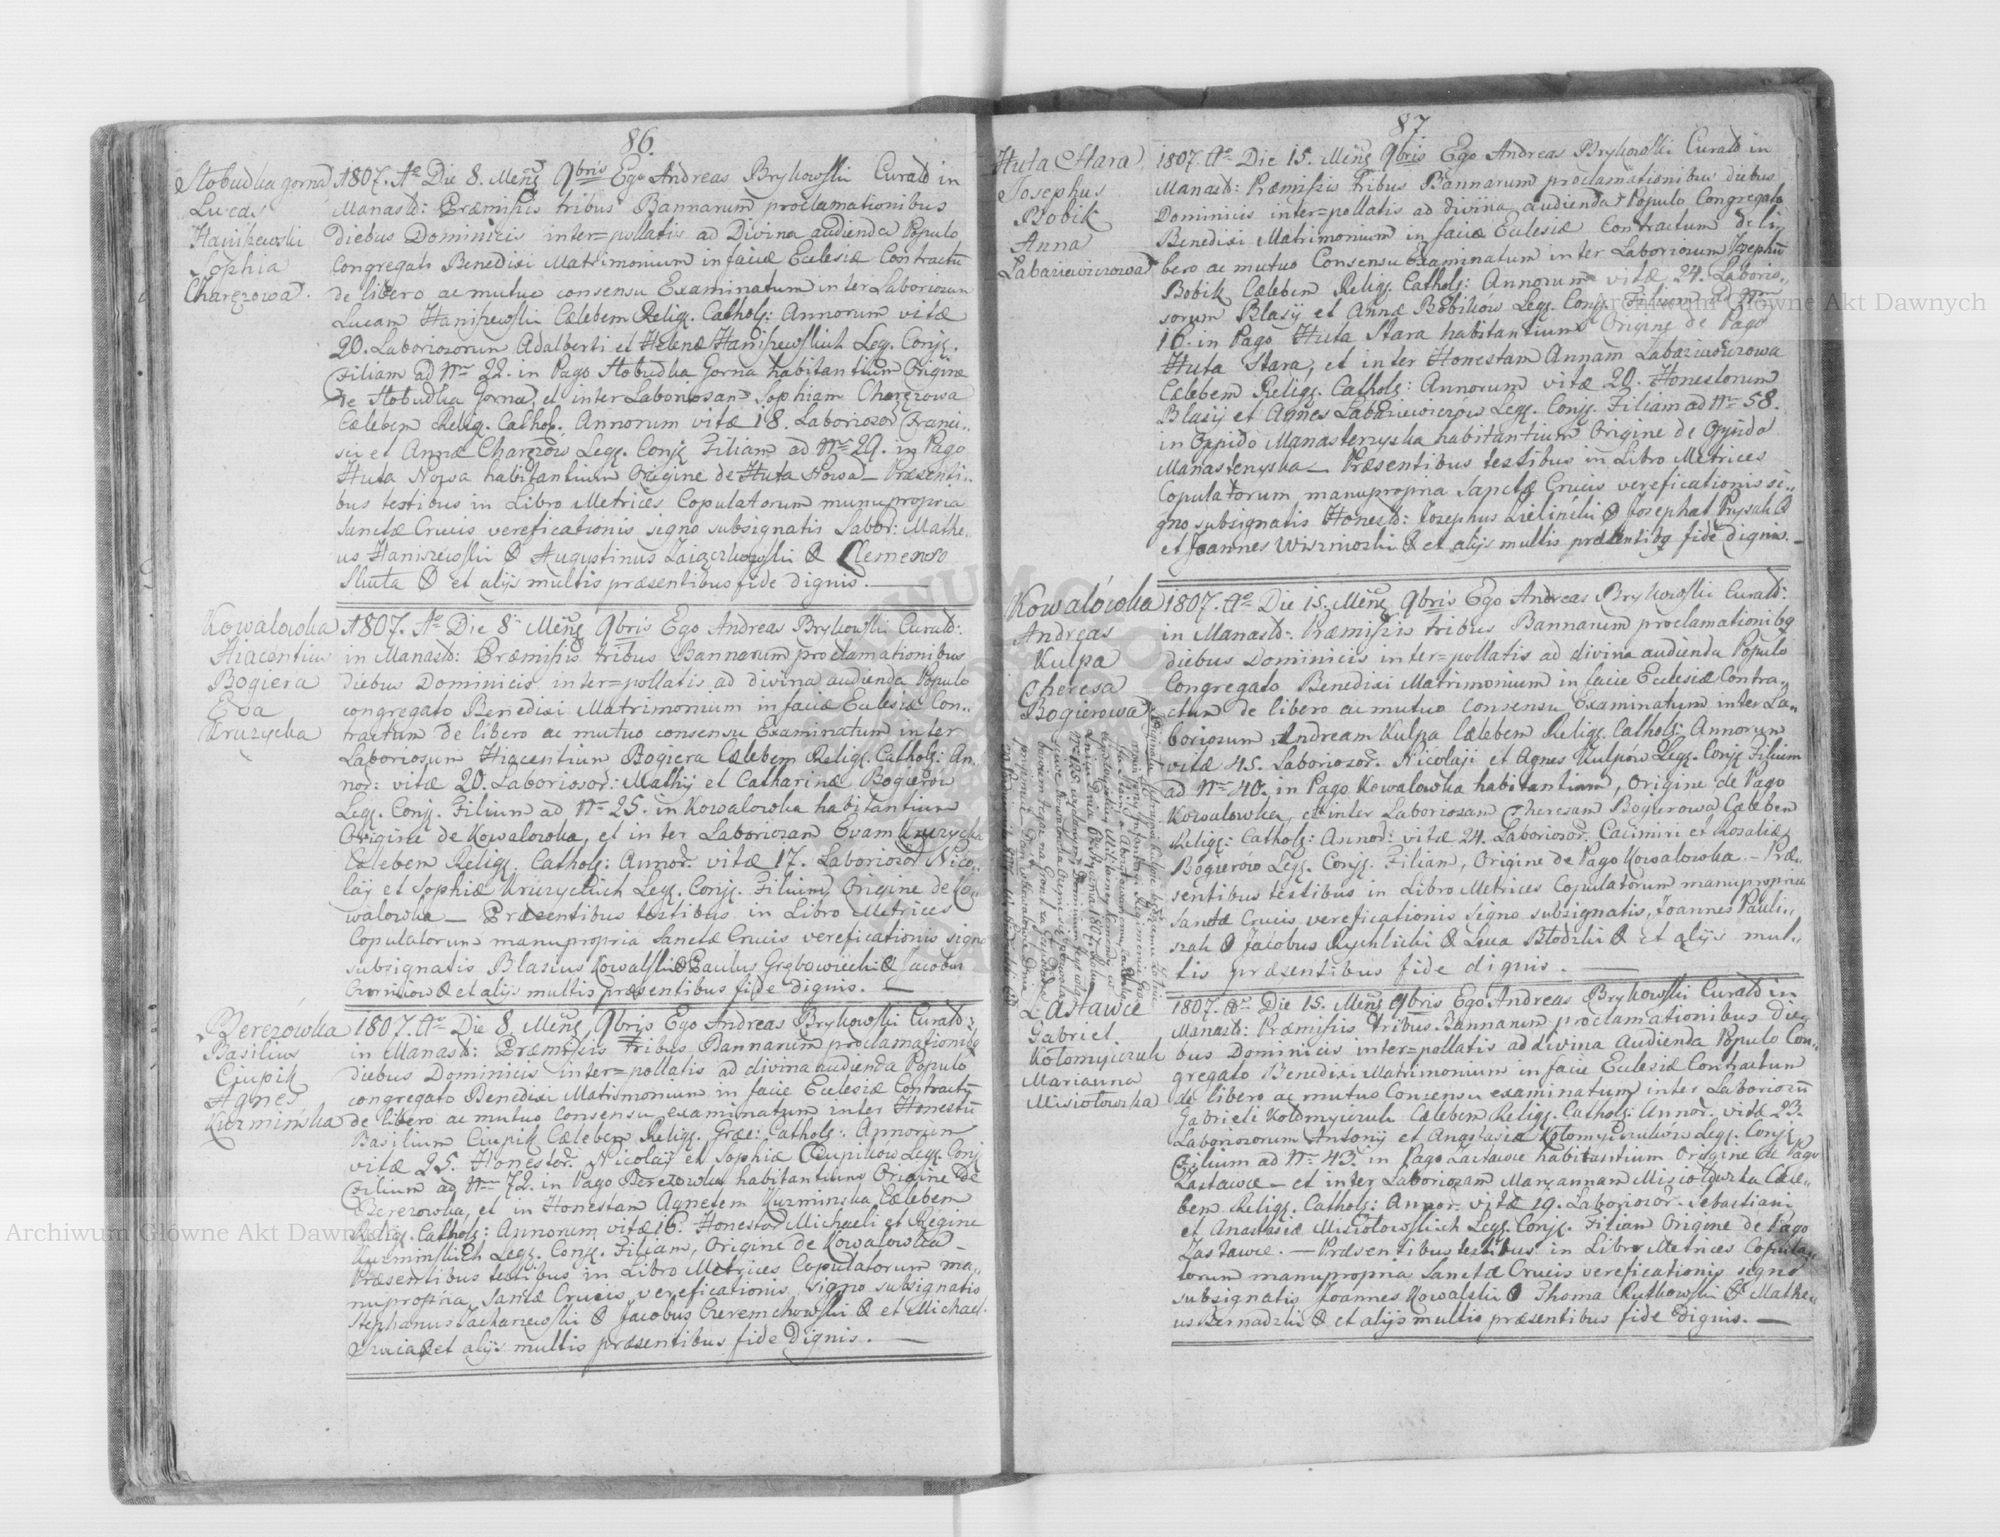 86.
Slobudka gorna
Lucas
Haniszewski
Sophia
Charęzowa.
1807. Ao Die 8. Mensg 9bris Ego Andreas Brykowski Curatd in
Manastd: Præmissis tribus Bannarum proclamationibus
diebus Dominicis inter=pollatis ad Divina audienda Populo
Congregato Benedixi Matrimonium in faciæ Eclesiæ Contractū
de libero ac mutuo consensu Examinatum inter Laboriosum
Lucam Haniszewski Cælebem Relig. Cathol: Annorum vitæ
20. Laboriosorum Adalberti et Helenæ Haniszewskich Leg. Conj.
Filiam ad Nrm 22. in Pago Slobudka Gorna habitantium Origine
de Slobudka Gorna, et inter Laboriosam Sophiam Charęzowa
Cælebem Relig. Cathol. Annorum vitæ 18. Laboriosor Franci..
sci et Annæ Charęzów Leg. Conj. Filiam ad Nrm 29. in Pago
Huta Nowa habitantium Origine de Huta Nowa — Præsenti..
bus testibus in Libro Metrices Copulatorum manupropria
Sanctæ Crucis vereficationis segno subsignatis Labor: Mathe..
us Haniszewski & Augustinus Zaiączkowski & Clemens
Skuta & et alijs multis præsentibus fide dignis. —
Kowalowka
Hiacentius
Bogiera
Eva
Kruzycka
1807. Ao Die 8. Mensg 9bris Ego Andreas Brykowski Curatd:
in Manastd: Præmissis tribus Bannarum proclamationibus
diebus Dominicis inter=pollatis ad divina audienda Populo
congregato Benedixi Matrimonium in faciæ Eclesiæ Con..
tractum de libero ac mutuo consensu Examinatum inter
Laboriosum Hiacentium Bogiera Cælebem Relig. Cathol: An..
nor: vitæ 20. Laboriosor: Mathij et Catharinæ Bogierów
Leg. Conj. Filium ad Nrm 25. in Kowalowka habitantium
Origine de Kowalowka, et inter Laboriosam Evam Kruzycka
Cælebem Relig. Cathol: Annor. vitæ 17. Laboriosor Nico..
laij et Sophiæ Kruzyckich Leg. Conj. Filium, Origine de Ko..
walowka — Præsentibus testibus in Libro Metrices
Copulatorum manupropria Sanctæ Crucis vereficationis signo
subsignatis Blasius Kowalski & Paulus Grębowiecki & Jacobus
& et alijs multis præsentibus fide dignis. —
Berezowka
Basilius
Ciupik
Agnes
Kuzmińska
1807. Ao Die 8. Mensg 9bris Ego Andreas Brykowski Curatd:
in Manastd: Præmissis tribus Bannarum proclamationibg
diebus Dominicis inter=pollatis ad divina audienda Populo
congregato Benedixi Matrimonium in faciæ Eclesiæ Contractū
de libero ac mutuo consensu examinatum inter Honestū
Basilium Ciupik Cælebem Relig. Græc: Cathol: Annorum
vitæ 25. Honestor. Nicolaij et Sophiæ Ciupików Leg. Conj
Filium ad Nrm 72. in Pago Berezowka habitantium Origine de
Berezowka, et in Honestam Agnetem Kuzminska Cælebem
Relig. Cathol: Annorum vitæ 16. Honestor Michaeli et Regine
Kuzminskich Leg. Conj. Filiam, Origine de Kowalowka —
Præsentibus testibus in Libro Metrices Copulatorum ma..
nupropria, Sanctæ Crucis vereficationis, signo subsignatis
Stephanus Zacharzewski & Jacobus Czeremchowski & et Michael
& et alijs multis præsentibus fide Dignis. —
87.
Huta Stara
Josephus
Bobik
Anna
Labaziewiczowa
1807. Ao Die 15. Mensg 9bris Ego Andreas Brykowski Curatd in
Manastd: Præmissis tribus Bannarum proclamationibus diebus
Dominicis inter=pollatis ad divina audienda Populo Congregato
Benedixi Matrimonium in faciæ Eclesiæ Contractum de li
bero ac mutuo Consensu Examinatum inter Laboriosum Josephū
Bobik Cælebem Relig. Cathol: Annorum vitæ 24. Laborio..
sorum Blasij et Annæ Bobików Leg. Conj. Filium ad Nrm
16. in Pago Huta Stara habitantium Origine de Pago
Huta Stara, et inter Honestam Annam Labaziewiczowa
Cælebem Relig. Cathol: Annorum vitæ 20. Honestorum
Blasij et Agnes Labaziewiczów Leg. Conj. Filiam ad Nrm 58.
in Oppido Manasterzyska habitantium Origine de Oppido
Manasterzyska — Præsentibus testibus in Libro Metrices
Copulatorum manupropria Sanctæ Crucis vereficationis si..
gno subsignatis Honestd: Josephus Zieliński & Josephat Prysak &
et Joannes Wiszniozki & et alijs multis præsentibg fide dignis. —
Kowalówka
Andreas
Kulpa
Theresa
Bogierowa
1807. Ao Die 15. Mensg 9bris Ego Andreas Brykowski Curatd:
in Manastd: Præmissis tribus Bannarum proclamationibg
diebus Dominicis inter=pollatis ad divina audienda Populo
Congregato Benedixi Matrimonium in facie Eclesiæ Contra..
ctum de libero ac mutuo consensu Examinatum inter La..
boriosum Andream Kulpa Cælebem Relig. Cathol: Annorum
vitæ 45. Laboriosor. Nicolaji et Agnes Kulpów Leg. Conj. Filium
ad Nrm 40. in Pago Kowalowka habitantium, Origine de Pago
Kowalowka, et inter Laboriosam Theresam Bogierowa Cæleben
Relig: Cathol: Annor: vitæ 24. Laboriosor. Casimiri et Rosaliæ
Bogierów Leg. Conj. Filiam, Origine de Pago Kowalowka. — Præ..
sentibus testibus in Libro Metrices Copulatorum manupropria
Sanctæ Crucis vereficationis segno subsignatis, Joannes Pauli..
szak & Jacobus Rychlicki & Luca Błodzki & et alijs mul..
tis præsentibus fide dignis. —
Zastawce
Gabriel
Kołomyiczuk
Marianna
Misiołowska
1807. Ao Die 15. Mensg 9bris Ego Andreas Brykowski Curatd in
Manastd: Præmissis tribus Bannarum proclamationibus die..
bus Dominicis inter=pollatis ad divina Audienda Populo Con..
gregato Benedixi Matrimonium in faciæ Eclesiæ Contractum
de libero ac mutuo Consensu examinatum inter Laboriosū
Gabrieli Kołomyiczuk Cælebem Relig. Cathol: Annor. vitæ 23.
Laboriosorum Antonij et Anastasiæ Kołomyiczuków Leg. Conj.
Filium ad Nrm 43. in Pago Zastawce habitantium Origine de Pago
Zastawce — et inter Laboriosam Mariannam Misiołowska Cæle..
bem Relig. Cathol: Annor. vitæ 19. Laboriosor. Sebastiani
et Anastasiæ Misiołowskich Leg. Conj. Filiam Origine de Pago
Zastawce. — Præsentibus testibus in Libro Metrices Copula..
torum manupropria Sanctæ Crucis vereficationis segno
subsignatis Joannes Kowalski & Thoma Rutkowski & Mathe..
us Bernadzki & et alijs multis præsentibus fide Dignis. —
Archiwum Główne Akt Dawnych
Archiwum Główne Akt Dawnych